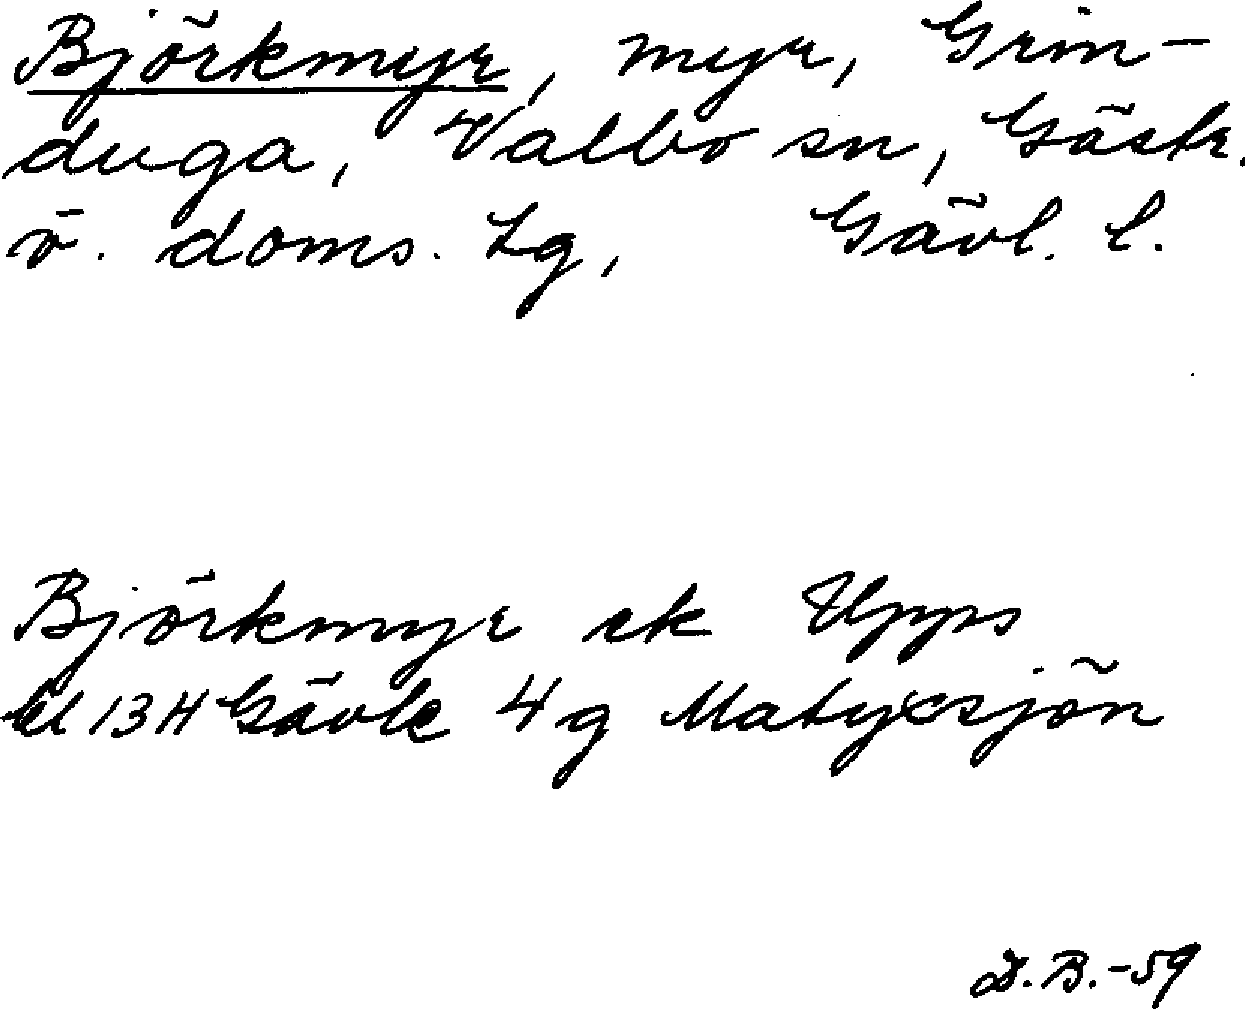 Björkmyr, myr, Grin-
duga, Valbo sn, Gästr.
ö. doms. Lg, Gävl. l.
Björkmyr ek Upps
bl 13H Gävle 4g Matyxsjön
D.B.-59